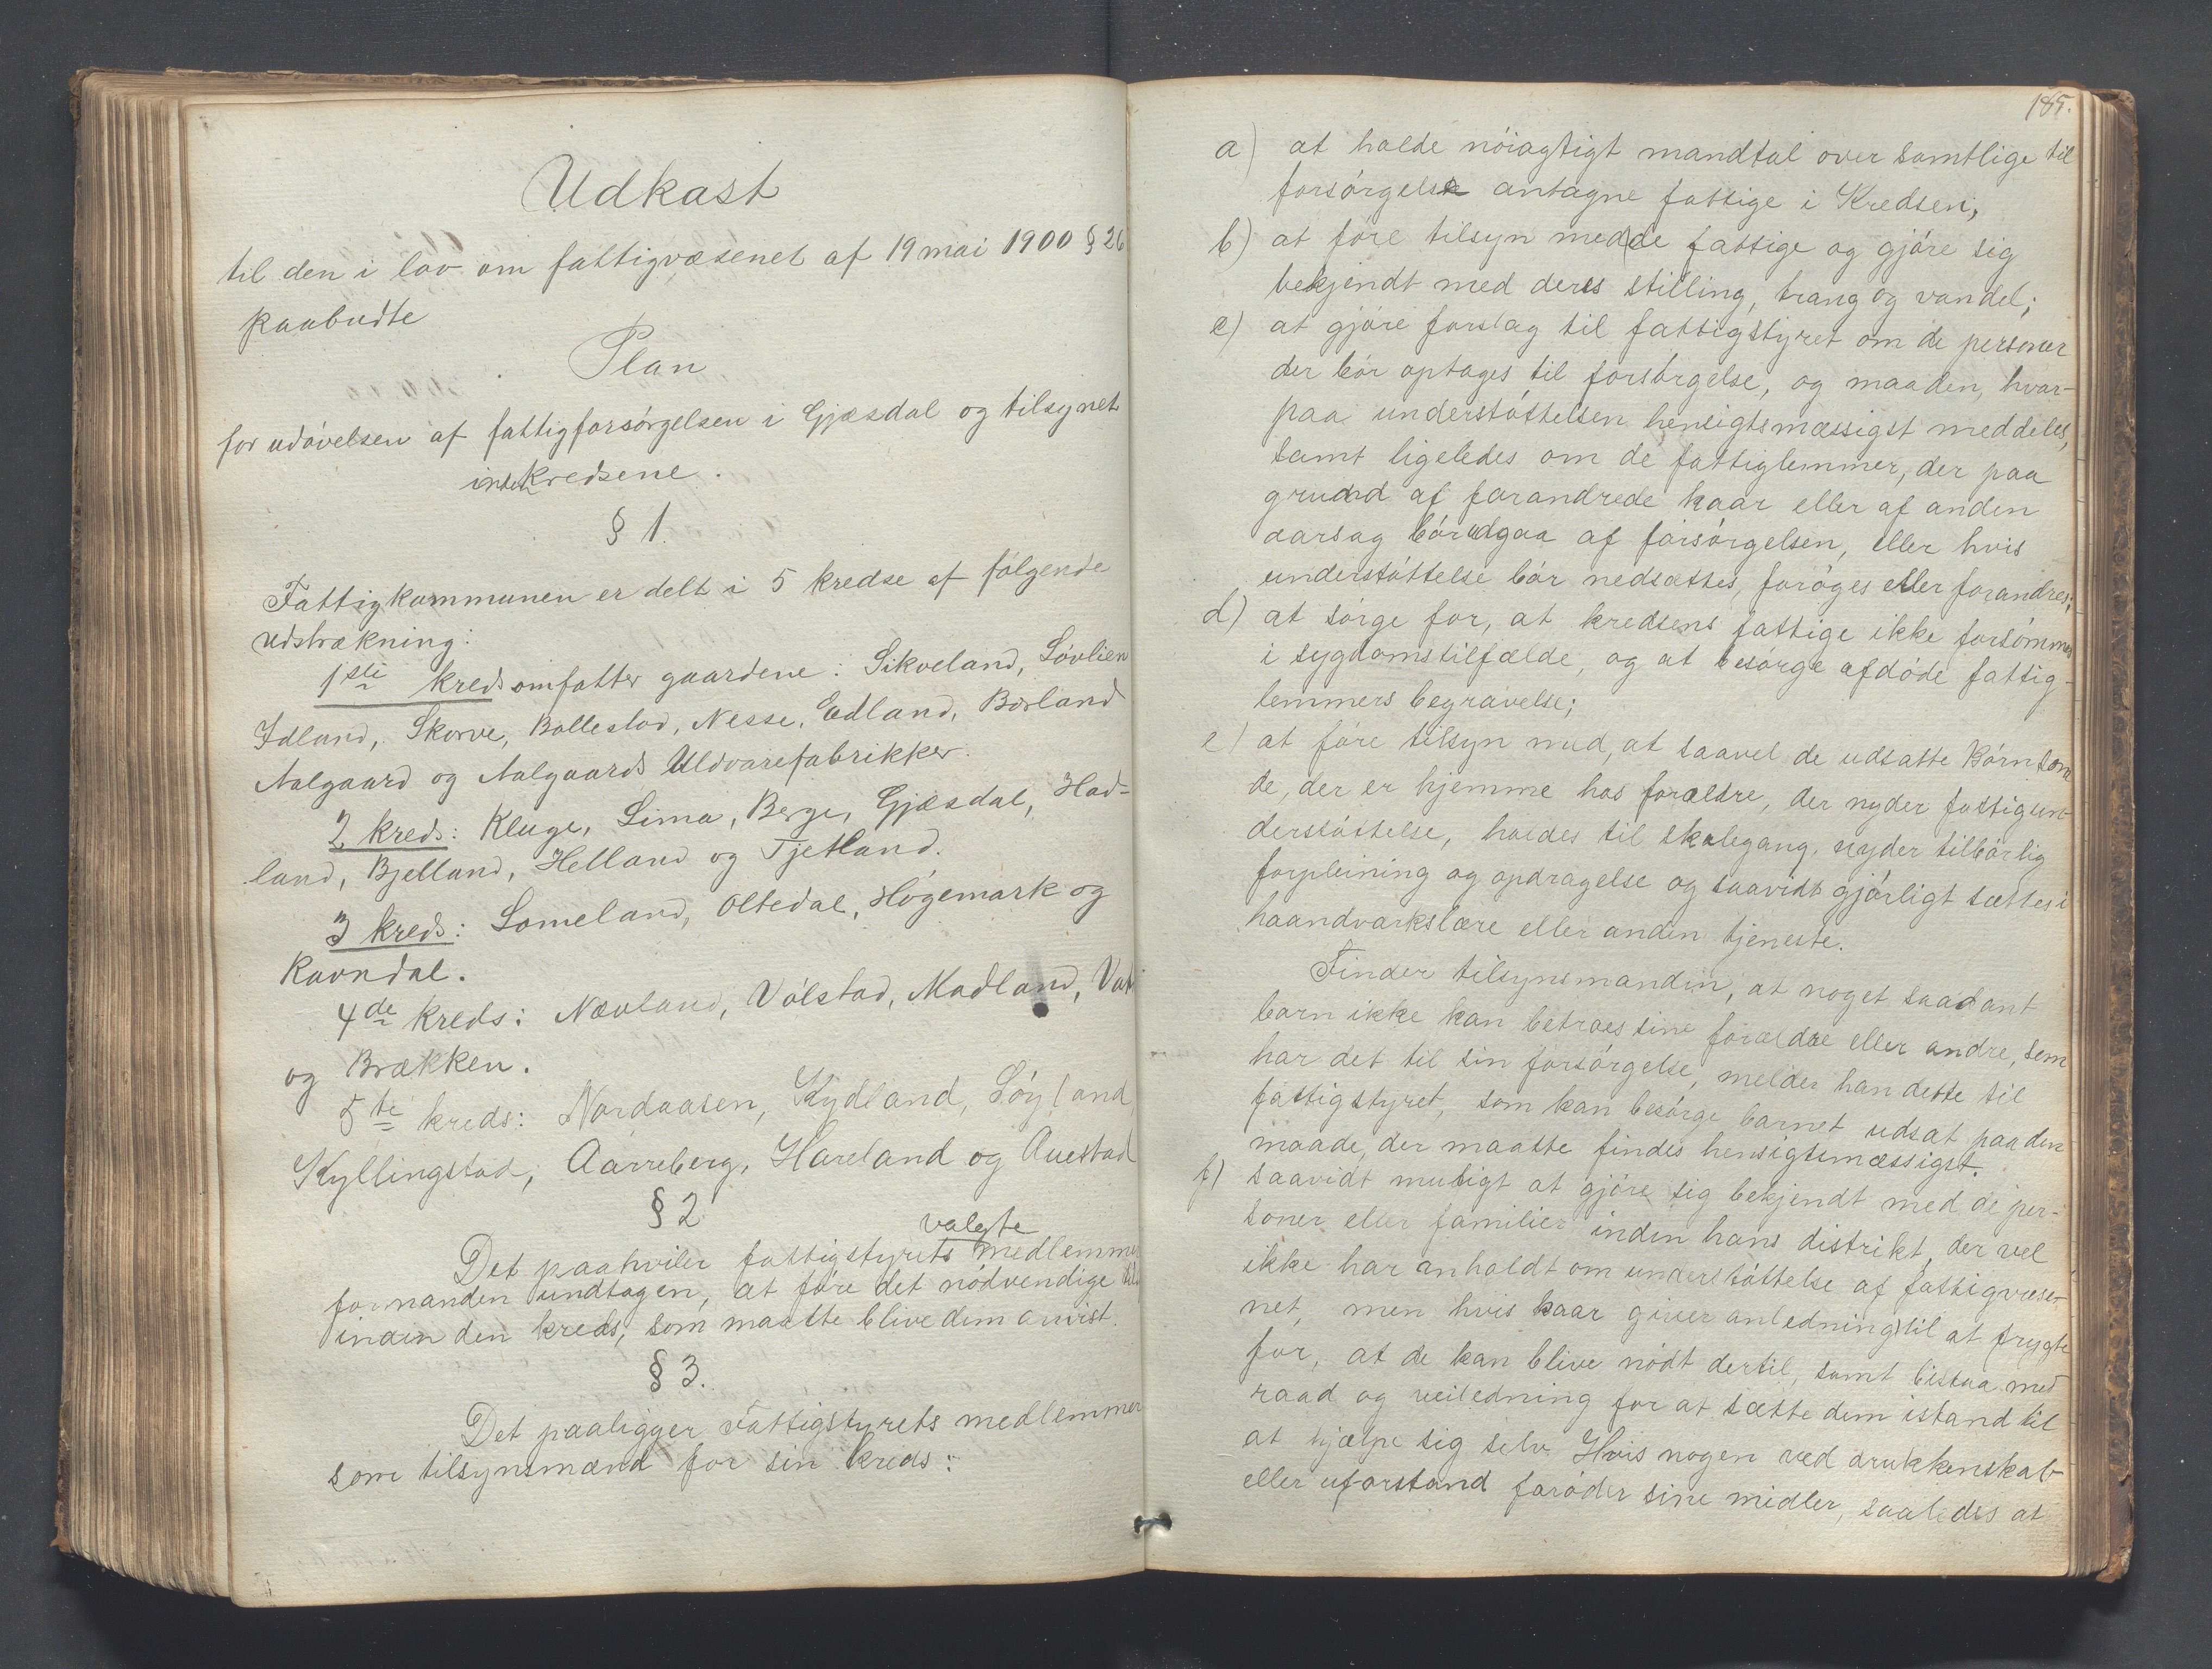 Udkast
til den i lov om fattigvæsenet af 19 mai 1900 § 26
paabudte
Plan
for udövelsen af fattigforsörgelsen i Gjæsdal og tilsynet
i kredsene.
§ 1.
Fattigkommunen er delt i 5 kredse af fölgende
udstrækning:
1ste kreds omfatter gaardene: Sikveland, Lövlien
Idland, Skorve, Bollestad, Nesse, Edland, Borland
Aalgaard og Aalgaards Uldvarefabrikker.
2 kreds: Kluge, Lima, Berge, Gjæsdal, Had-
land, Bjelland, Helland og Tjetland.
3 kreds: Lomeland, Oltedal, Högemark og
Ravndal.
4de kreds: Nævland, Völstad, Madland,
og Brækken.
5te kreds: Nordaasen, Kydland, Söyland
Kyllingstad, Aarreberg, Hareland og Auestad
§ 2
valgte
Det paahviler fattigstyrets medlemmer
formanden undtagen, at före det nödvendige
inden den kreds, som maatte blive dem anvist.
§ 3.
Det paaligger Fattigstyrets medlemmer
som tilsynsmænd for sin kreds:
185.
a) at holde nöiagtigt mandtal over samtlige til
forsörgelse antagne fattige i Kredsen,
b) at före tilsyn med de fattige og gjöre sig
bekjendt med deres stilling, trang og vandel;
c) at gjöre forslag til fattigstyret om de personer
der bör optages til forsörgelse, og maaden, hvor-
paa understöttelsen hensigtsmæssigst meddeles,
samt ligeledes om de fattiglemmer, der paa
grund af forandrede kaar eller af anden
aarsag bör udgaa af forsörgelsen, eller hvis
understöttelse bör nedsættes, foröges eller forandres;
d) at sörge for, at kredsens fattige ikke forsömmes
i sygdomstilfælde, og at besörge afdöde fattig-
lemmers begravelse;
e) at före tilsyn med, at saavel de udsatte börn som
de, der er hjemme hos forældre, der nyder fattigun-
derstöttelse, holdes til skolegang, nyder tilbörlig
forpleining og opdragelse og saavidt gjörligt sættes i
haandværkslære eller anden tjeneste.
Finder tilsynsmanden, at noget saadant
barn ikke kan betroes sine forældre eller andre, som
har det til sin forsörgelse, melder han dette til
fattigstyret, som kan besörge barnet udsat paa den
maade, der maatte findes hensigtsmæssigst.
f) saavidt muligt at gjöre sig bekjendt med de per-
soner eller familier inden hans distrikt, der vel
ikke har anholdt om understöttelse af fattigvæse-
net, men hvis kaar giver anledning til at frygte
for, at de kan blive nödt dertil, samt bistaa med
raad og veiledning for at sætte dem istand til
at hjælpe sig selv. Hvis nogen ved drukkenskab
eller uforstand foröder sine midler, saaledes at